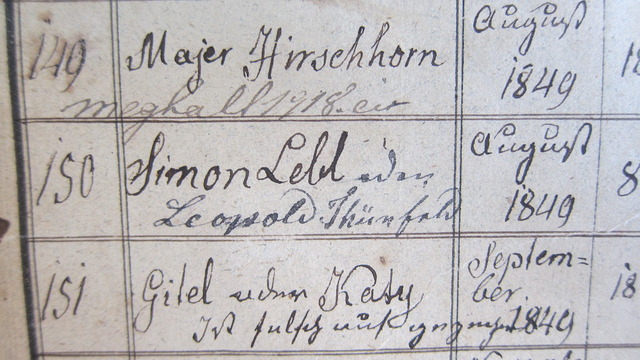 149 Majer Hirschhorn August 1849 18
meghalt 1918. év
150 Simon Lebl oder August 1849 8
Leopold Thürfeld
151 Gitel oder Katy Septem=ber 1849 18
Ist falsch auf